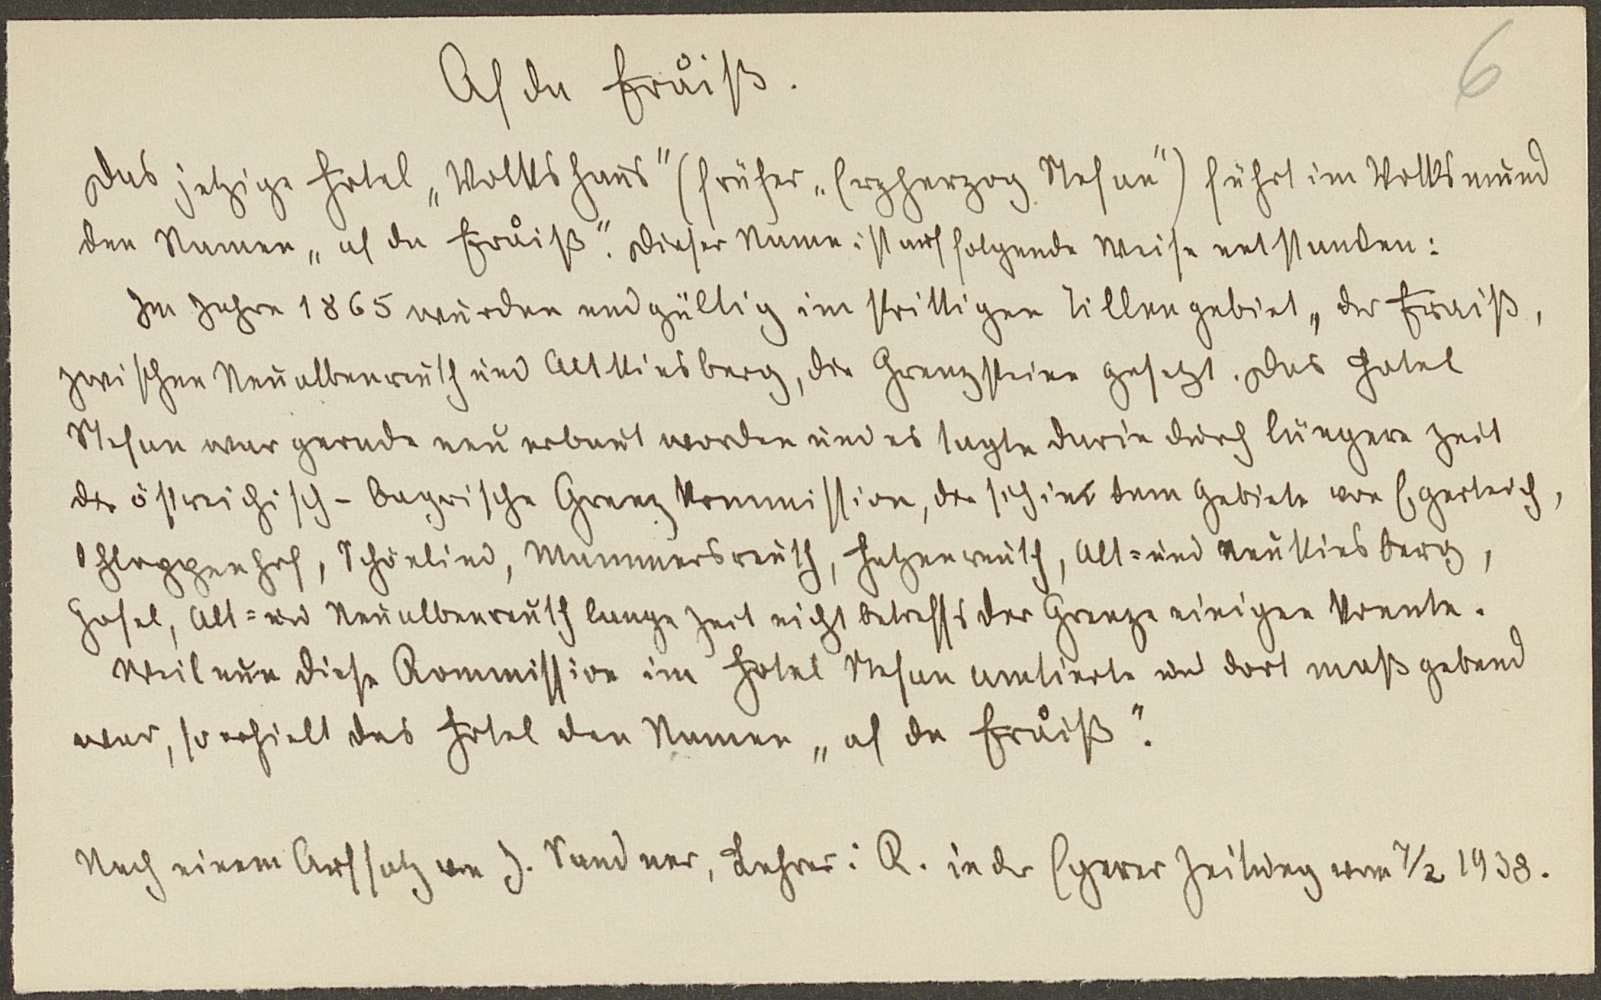 Af da Fråiß.
6
Das jetzige Hotel „Volkshaus" (früher „Erzherzog Stefan") führt im Volksmund
den Namen „af da Fråiß". Dieser Name ist auf folgende Weise entstanden:
Im Jahre 1865 wurden endgültig im strittigen Tillengebiet „der Fraiß,
zwischen Neualbenreuth und Altkinsberg, die Grenzsteine gesetzt. Das Hotel
Stefan war gerade neu erbaut worden und es tagte darin durch längere Zeit
die östreichisch-bayrische Grenzkommission, die sich in dem Gebiete von Egerteich,
Schloppenhof, Schönlind, Mammersreuth, Hatzenreuth, Alt= und Neukinsberg,
Gosel, Alt= und Neualbenreuth lange Zeit nicht betreffs der Grenze einigen konnte.
Weil nun diese Kommission im Hotel Stefan amtierte und dort maßgebend
war, so erhielt das Hotel den Namen „af da Fråiß".
Nach einem Aufsatz von J. Sandner, Lehrer i R. in der Egerer Zeitung vom 7/2 1938.